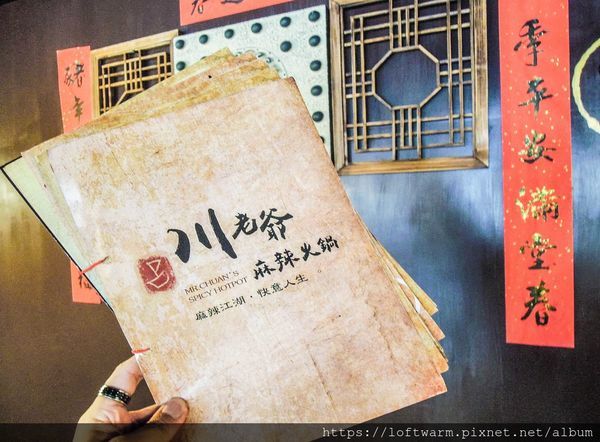 春
豬年
福
季年安滿堂春
川老爺
麻辣火鍋
MR.CHUAN'S
SPICY HOTPOT
麻辣江湖，快意人生
https://loftwarm.pixnet.net/album